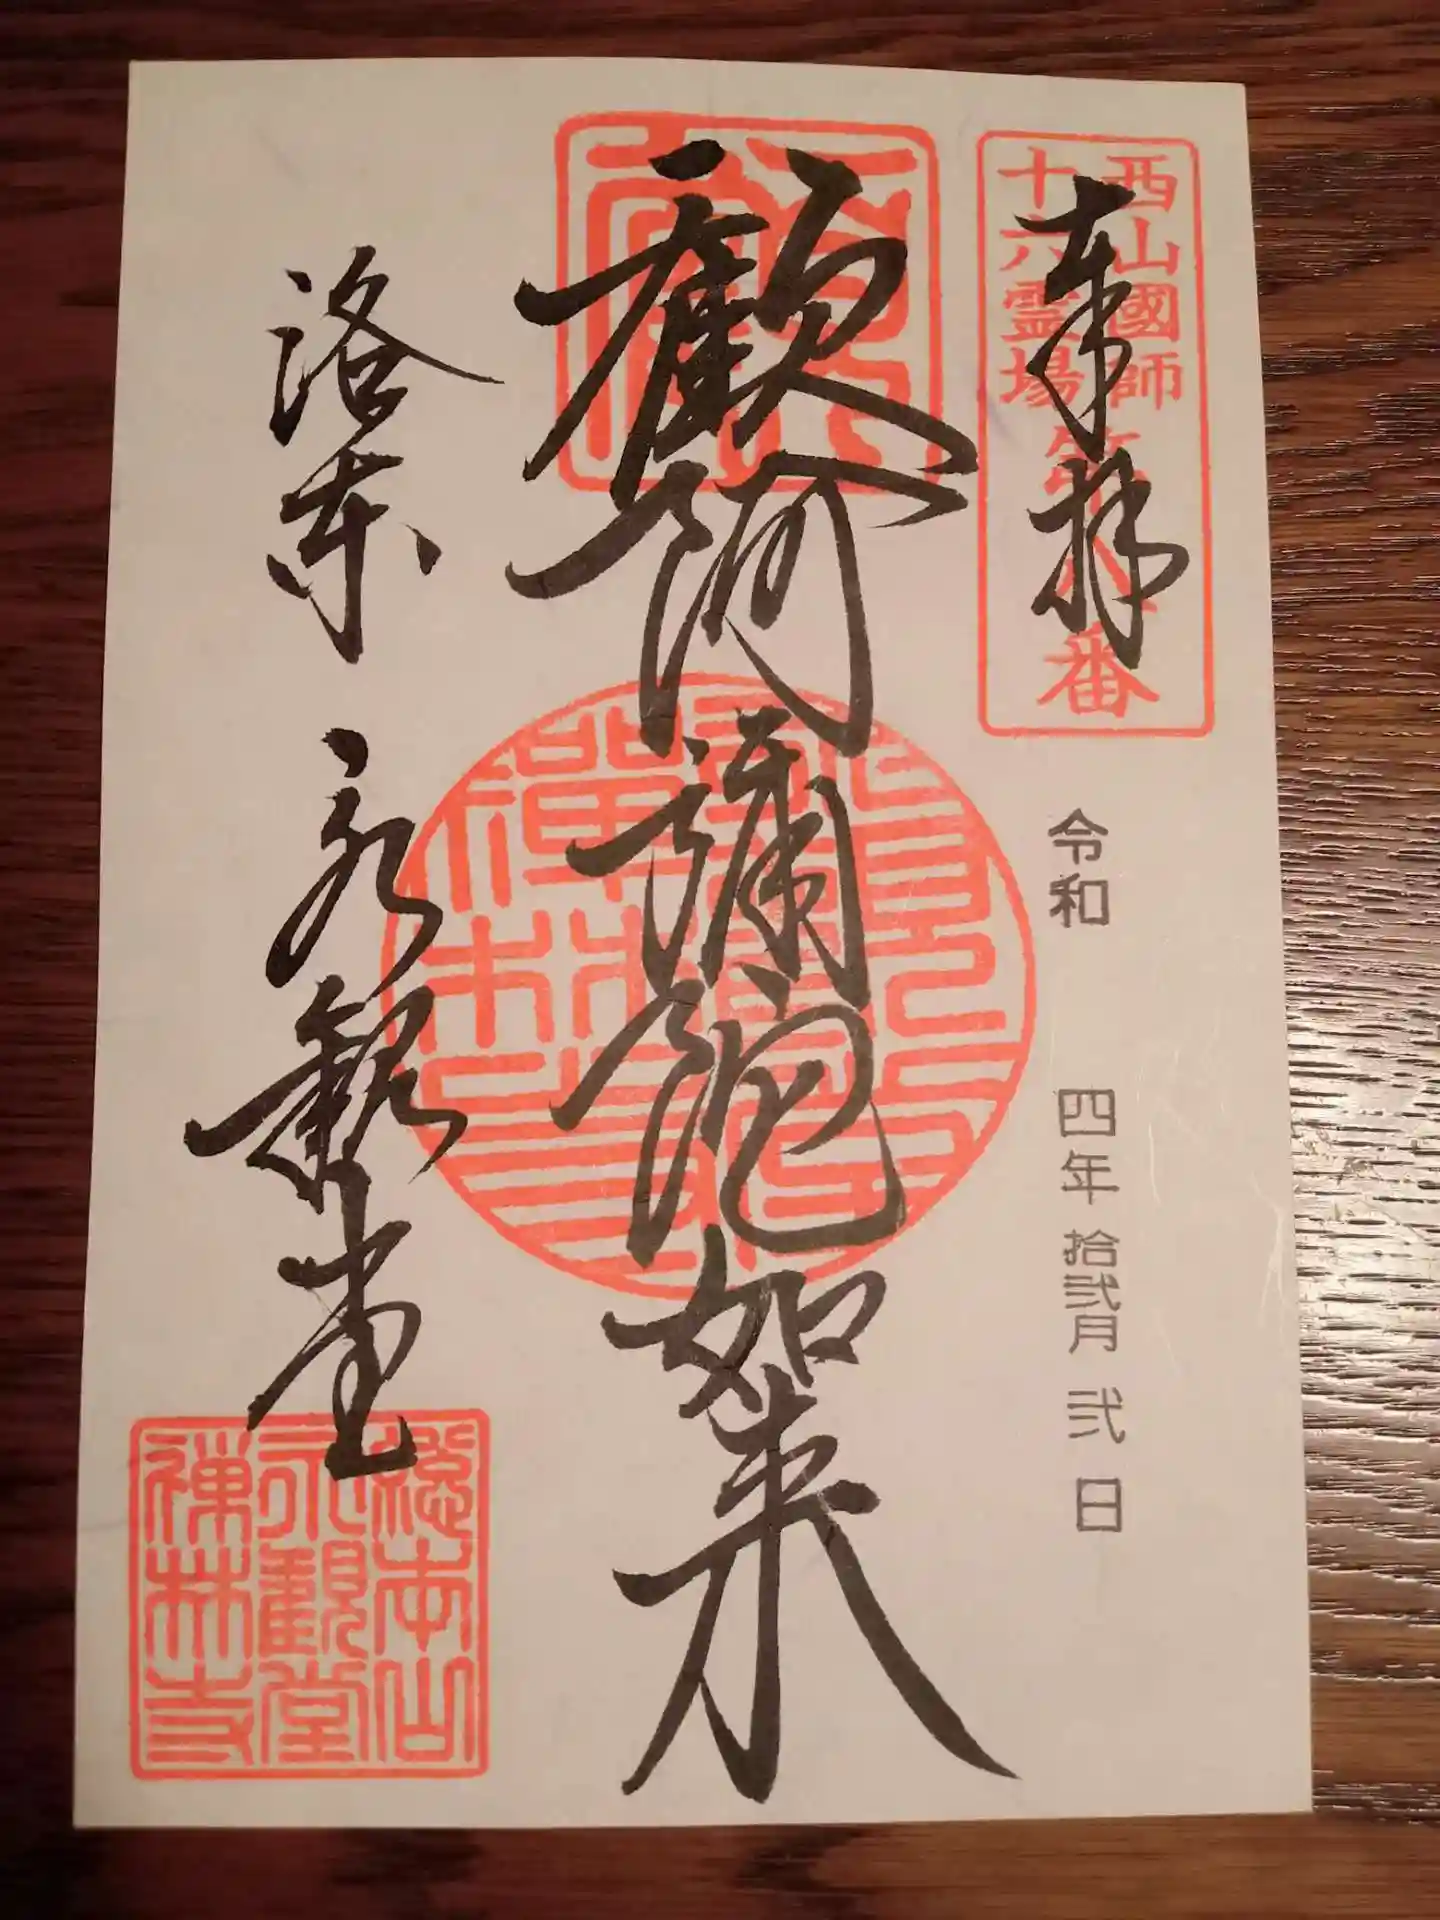 奉拝
西山國師
十六霊場
第八番
令和 四年 拾弐月 弐日
顧阿彌陀如来
洛東 永觀堂
總本山
永觀堂
禪林寺